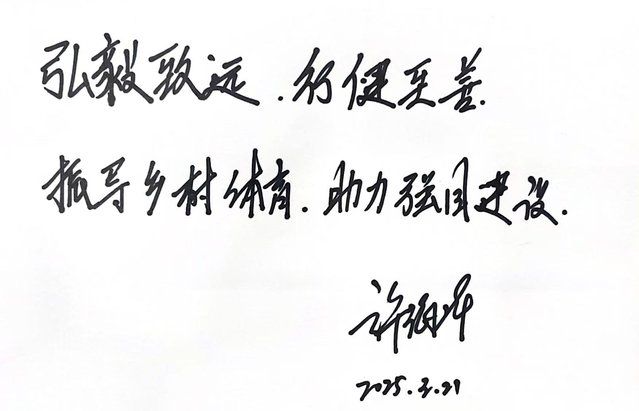 弘毅致远.行健至善.
振导乡村体育.助力强国建设.
许海峰
2025.3.21